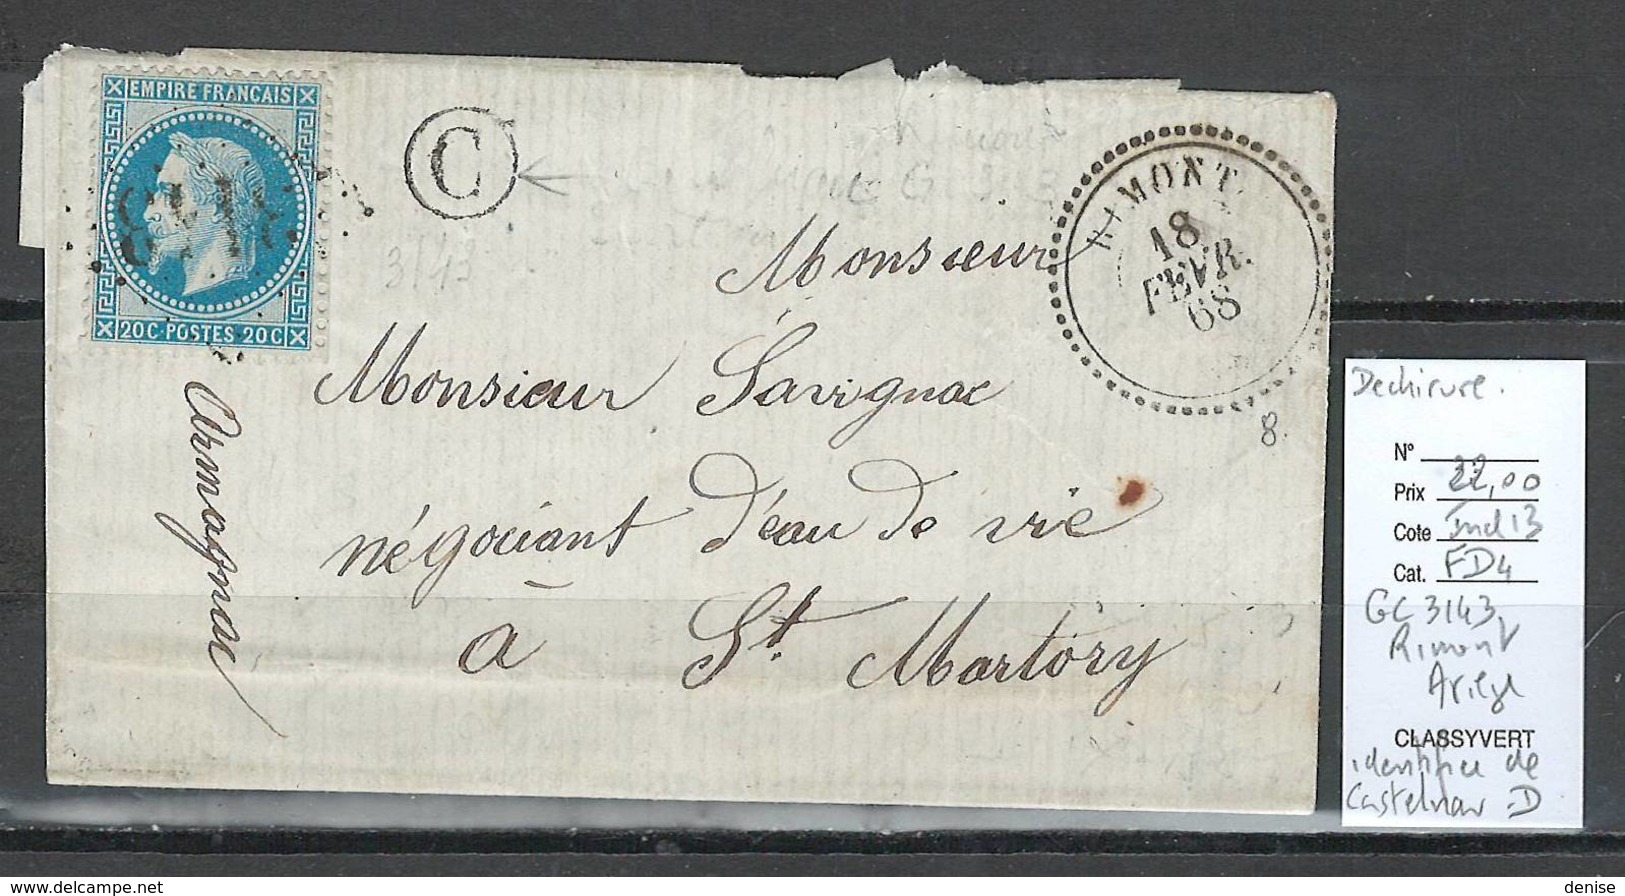 EMPIRE FRANÇAIS
3143
20C·POSTES·20C
C
3143
RIMONT
18
FEVR.
68
8.
Monsieur
Monsieur Savignac
négociant d'eau de vie
à
St. Martory
Armagnac
Dechirure.
N°
Prix 22,00
Cote Ind 13
Cat. FD4
GC 3143
Rimont
Ariège
CLASSYVERT
identifiée de
Castelnau -D
denise